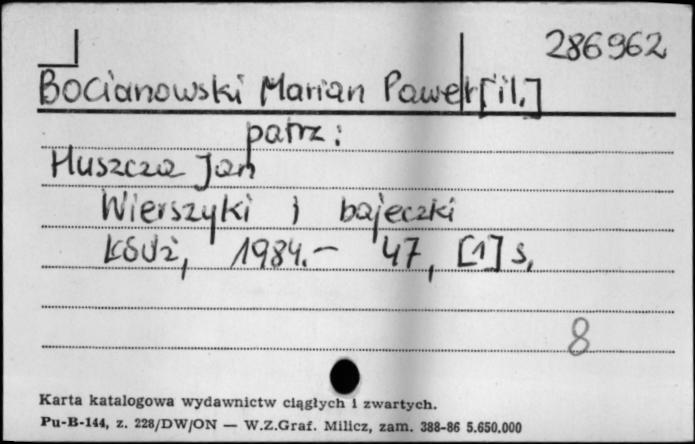 286962
Bocianowski Marian Paweł [il.]
patrz:
Huszcza Jan
Wierszyki i bajeczki
Łódź, 1984.- 47, [1] s.
8
Karta katalogowa wydawnictw ciągłych i zwartych.
Pu-B-144, z. 228/DW/ON — W.Z.Graf. Milicz, zam. 388-86 5.650.000